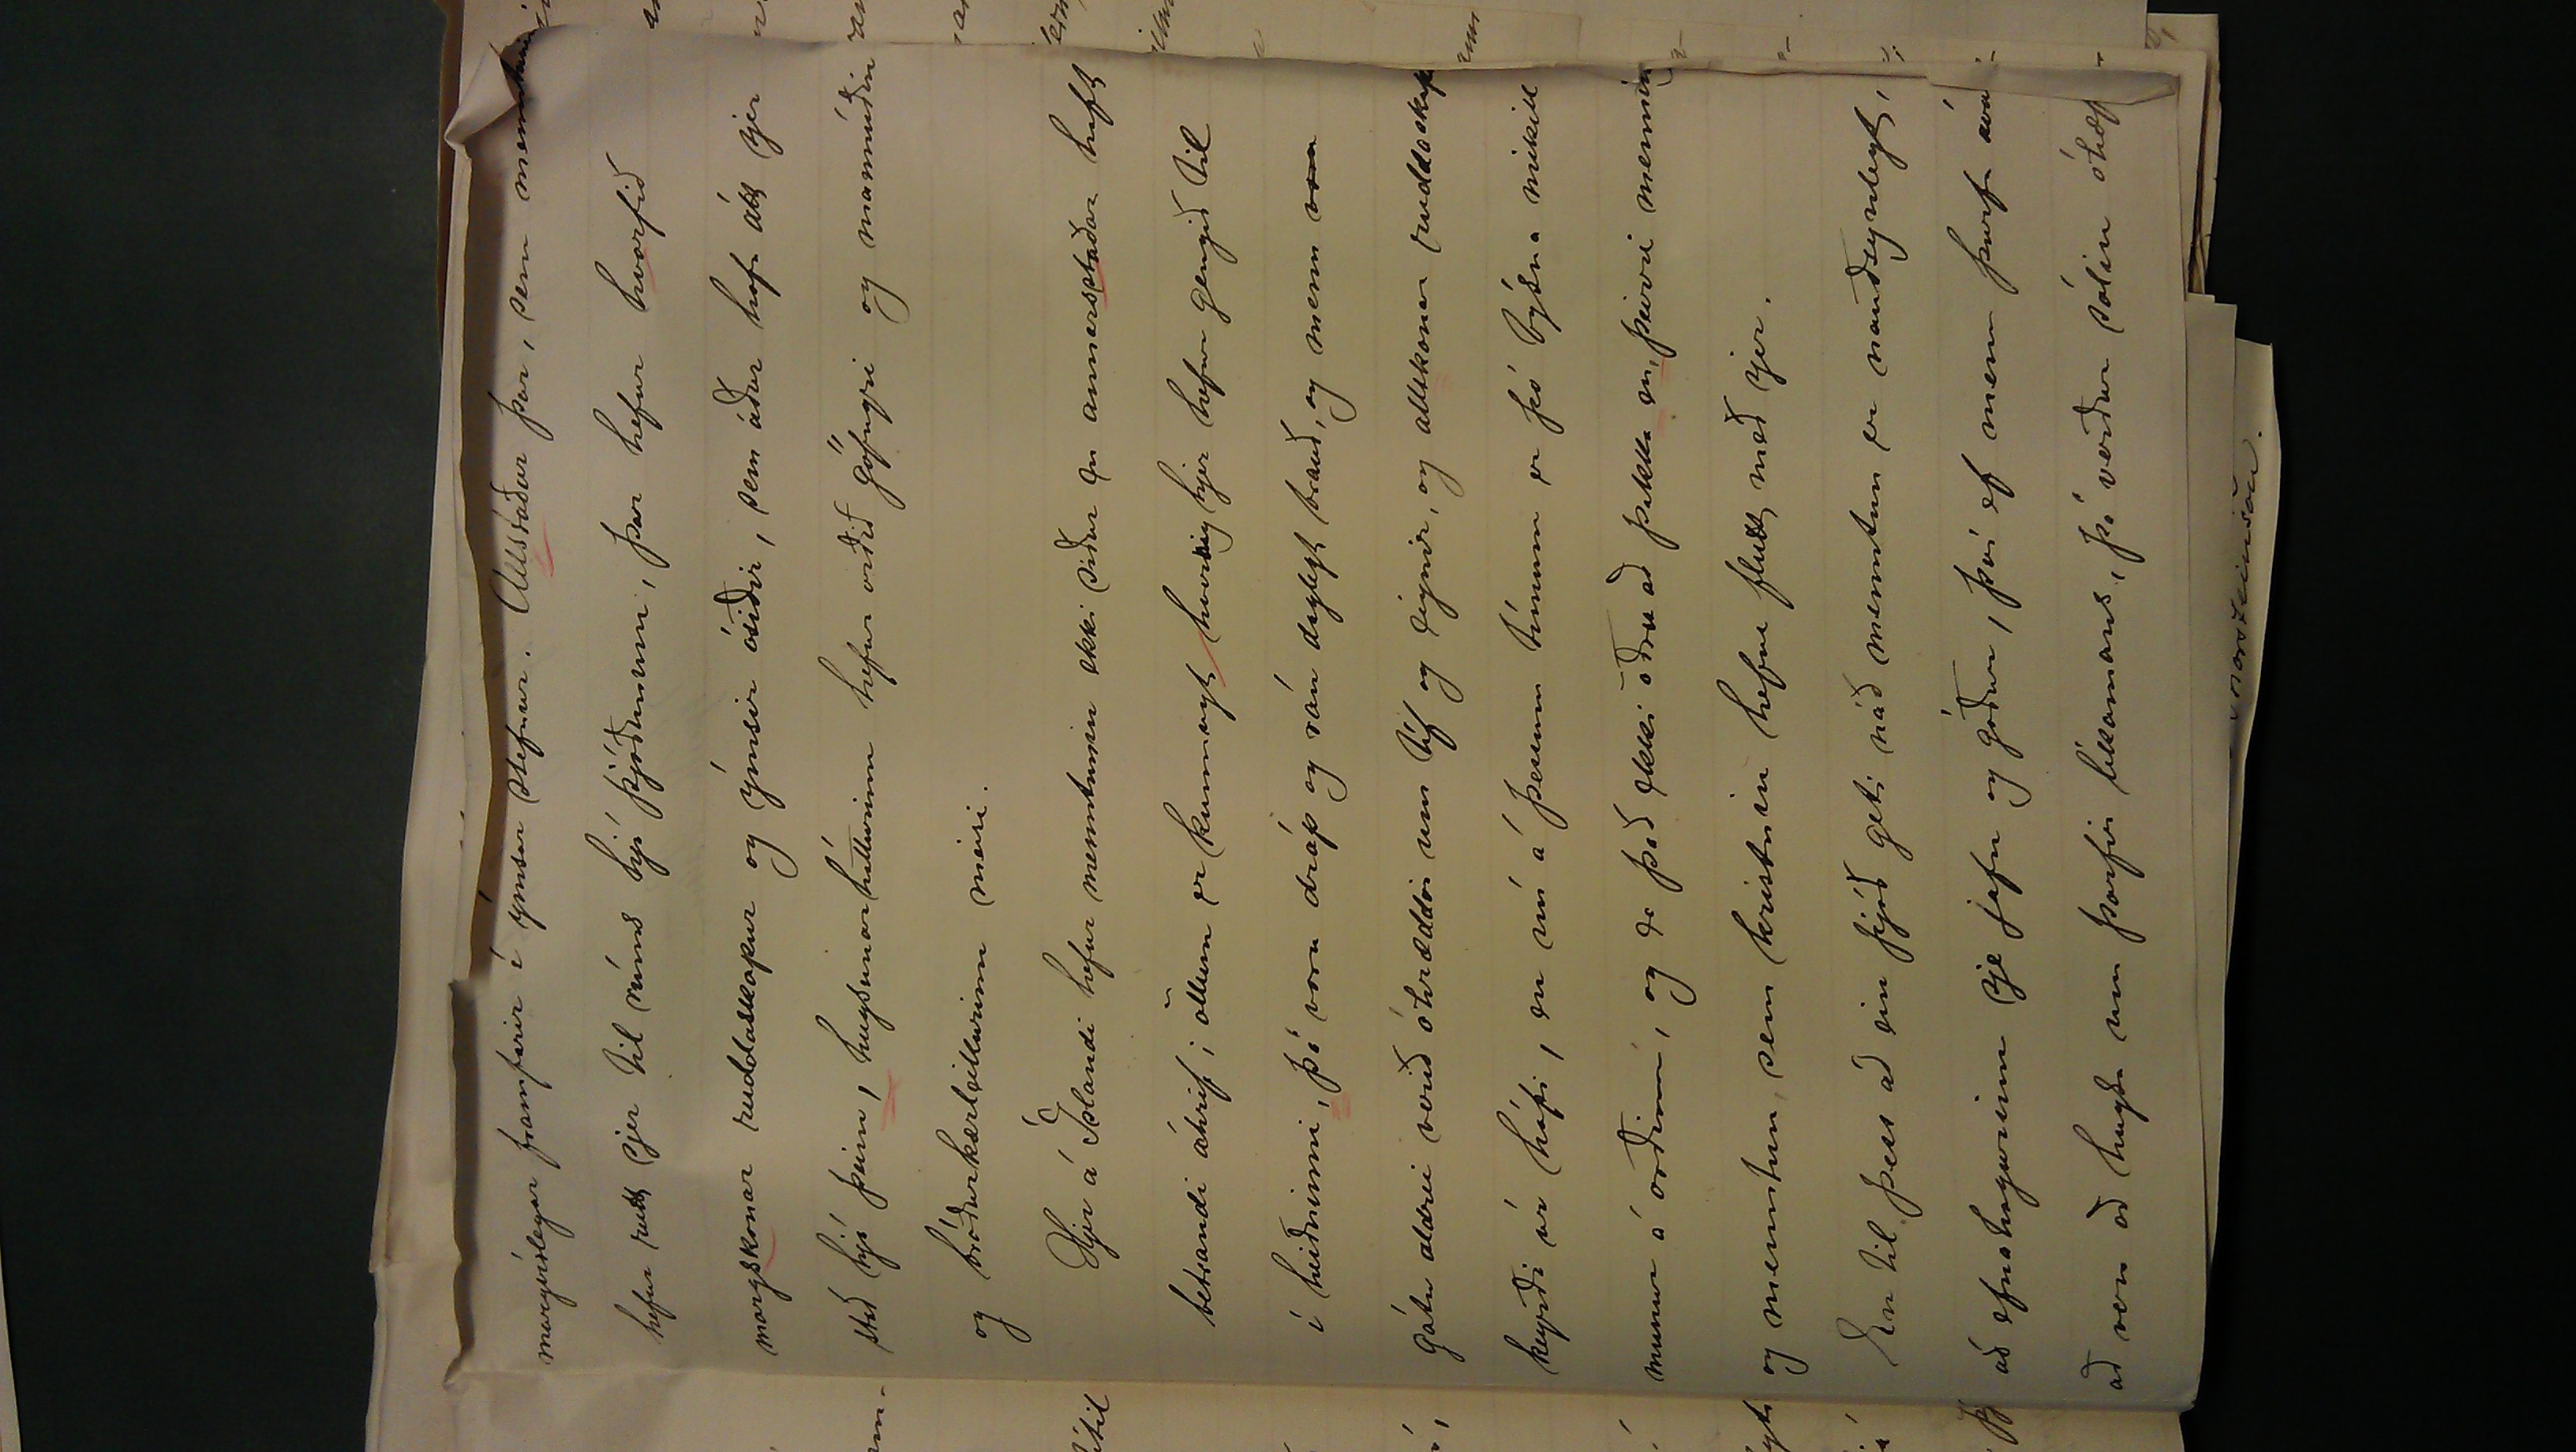 margvíslegar framfarir í ýmsar stefnur. Allsstaðar þar, sem menntunin
hefur rutt sjer til rúms hjá þjóðunum, þar hefur horfið
margskonar ruddaskapur og ýmsir ósiðir, sem áður hafa átt sjer
stað hjá þeim, hugsunarhátturinn hefur orðið göfugri og mannúðin
og bróðurkærleikurinn meiri.
Hjer á Íslandi hefur menntunin ekki síður en annarsstaðar haft
betrandi áhrif; öllum er kunnugt hvernig hjer hefur gengið til
í heiðninni, þá voru dráp og rán daglegt brauð, og menn
gátu aldrei verið óhræddir um líf og eignir, og allskonar ruddaskapur
keyrði úr hófi, en nú á þessum tímum er þó býsna mikill
munur á orðinn, og er það ekki öðru að þakka en þeirri menning
og menntun, sem kristnin hefur flutt með sjer.
En til þess að ein þjóð geti náð menntun er nauðsynlegt,
að efnahagurinn sje jafn og góður, því ef menn þurfa
að vera að hugsa um þarfir líkamans, þá verður sálin